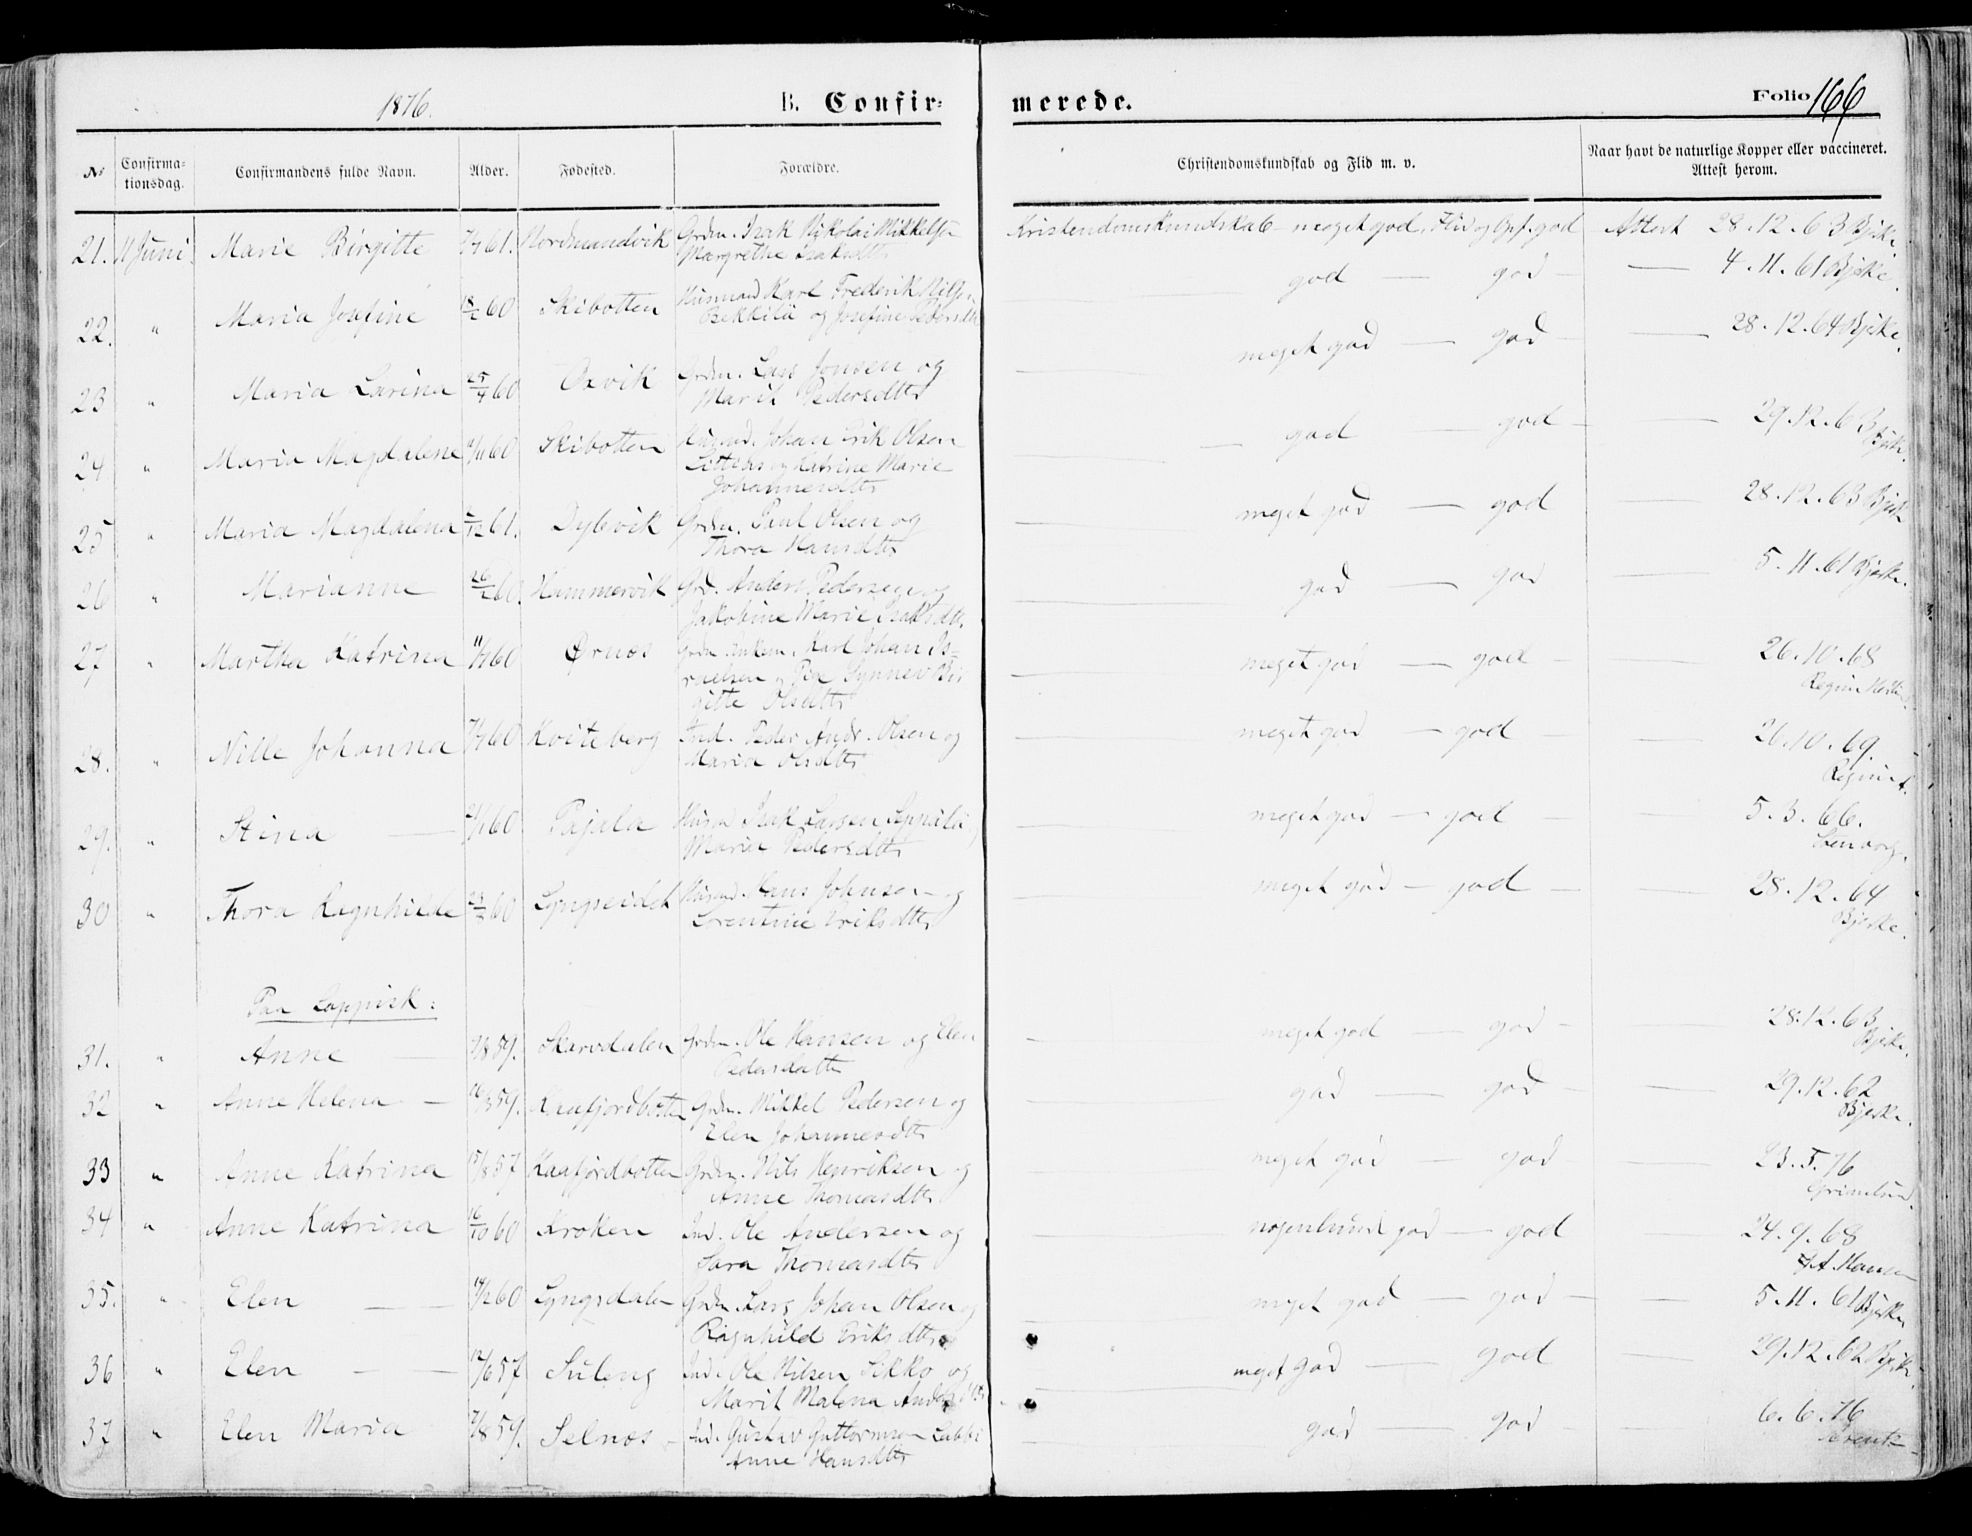 1876.
B. Confir-
merede.
Folio 166
No
Confirma-
tionsdag.
Confirmandens fulde Navn.
Alder.
Fødested.
Forældre.
Christendomskundskab og Flid m. v.
Naar havt de naturlige Kopper eller vaccineret.
Attest herom.
21. 11 Juni. Marie Birgitte 61. Nordmandvik Grdm. Isak Nikolai Mikkelsen
Margrethe Isaksdtr
Kristendomskundskab meget god, Flid og Opf. god Attest 28.12.63 Bjerke
22. " Maria Josefine 18/2 60 Skibotten Husmand Karl Frederik Nilsen
Bekkilä og Josefine Pedersdtr
god — god — 4.11.61 Bjerke.
23 " Maria Larina 25/4 60 Oxvik Grdm. Lars Jonsen og
Marit Pedersdtr
meget god — god — 28.12.64 Bjerke.
24 " Maria Magdalene 60 Skibotten Husmd. Johan Erik Olsen
og Katrine Marie
Johannesdtr
god — god — 29.12.63
Bjerke.
25 " Maria Magdalena 61. Dybvik Grdm. Paul Olsen og
Thora Hansdtr
meget god — god — 28.12.63 Bjerke
26 " Marianne 60. Hammervik Grd. Anders Pedersen og
Jakobine Marie Isaksdtr.
god — god — 5.11.61 Bjerke.
27 " Martha Katrina 60 Ørnæs Karl Johan Is-
raelsen og Synnev Bir
gitte Olsdtr
meget god — god — 26.10.68
28. " Nille Johanna 60 Kviteberg Ind. Peder Andr. Olsen og
Maria Olsdtr
meget god — god — 26.10.69
29. " Stina — 60 Pajala Husmd Isak Larsen
Maria Pedersdtr
meget god — god — 5.3.66.
30 " Thora Ragnhilde 60 Lyngseidet Husmd. Hans Johnsen og
Lorentine Eriksdtr
meget god — god — 28.12.64
Bjerke.
Paa Lappisk:
31. " Anne — 59. Skarvdalen Grdm. Ole Hansen og Elen
Pedersdatter
meget god — god — 28.12.63
Bjerke.
32 " Anne Helena — 59. Kaafjordbotten Grdm. Mikkel Pedersen og
Elen Johannesdtr
god — god — 29.12.62
Bjerke.
33 " Anne Katrina 57 Kaafjordbotten Grdm. Nils Henriksen og
Anne Thomasdtr
meget god — god — 23.5.76
34 " Anne Katrina 16/10 60 Kroken Ind. Ole Andersen og
Sara Thomasdtr
nogenlunde god — god — 24.9.68
Hansen
35. " Elen — 60 Lyngsdalen Grdm. Lars Johan Olsen og
Ragnhild Eriksdtr
meget god — god — 5.11.61 Bjerke
36 " Elen — 57 Suleng Ind. Ole Nilsen Sikko og
Marit Malena Andersdtr
meget god — god — 29.12.62 Bjerke.
37 " Elen Maria 59. Selnæs Ind. Gustav Guttormsen Labbi
Anne Hansdtr
god — god — 6.6.76